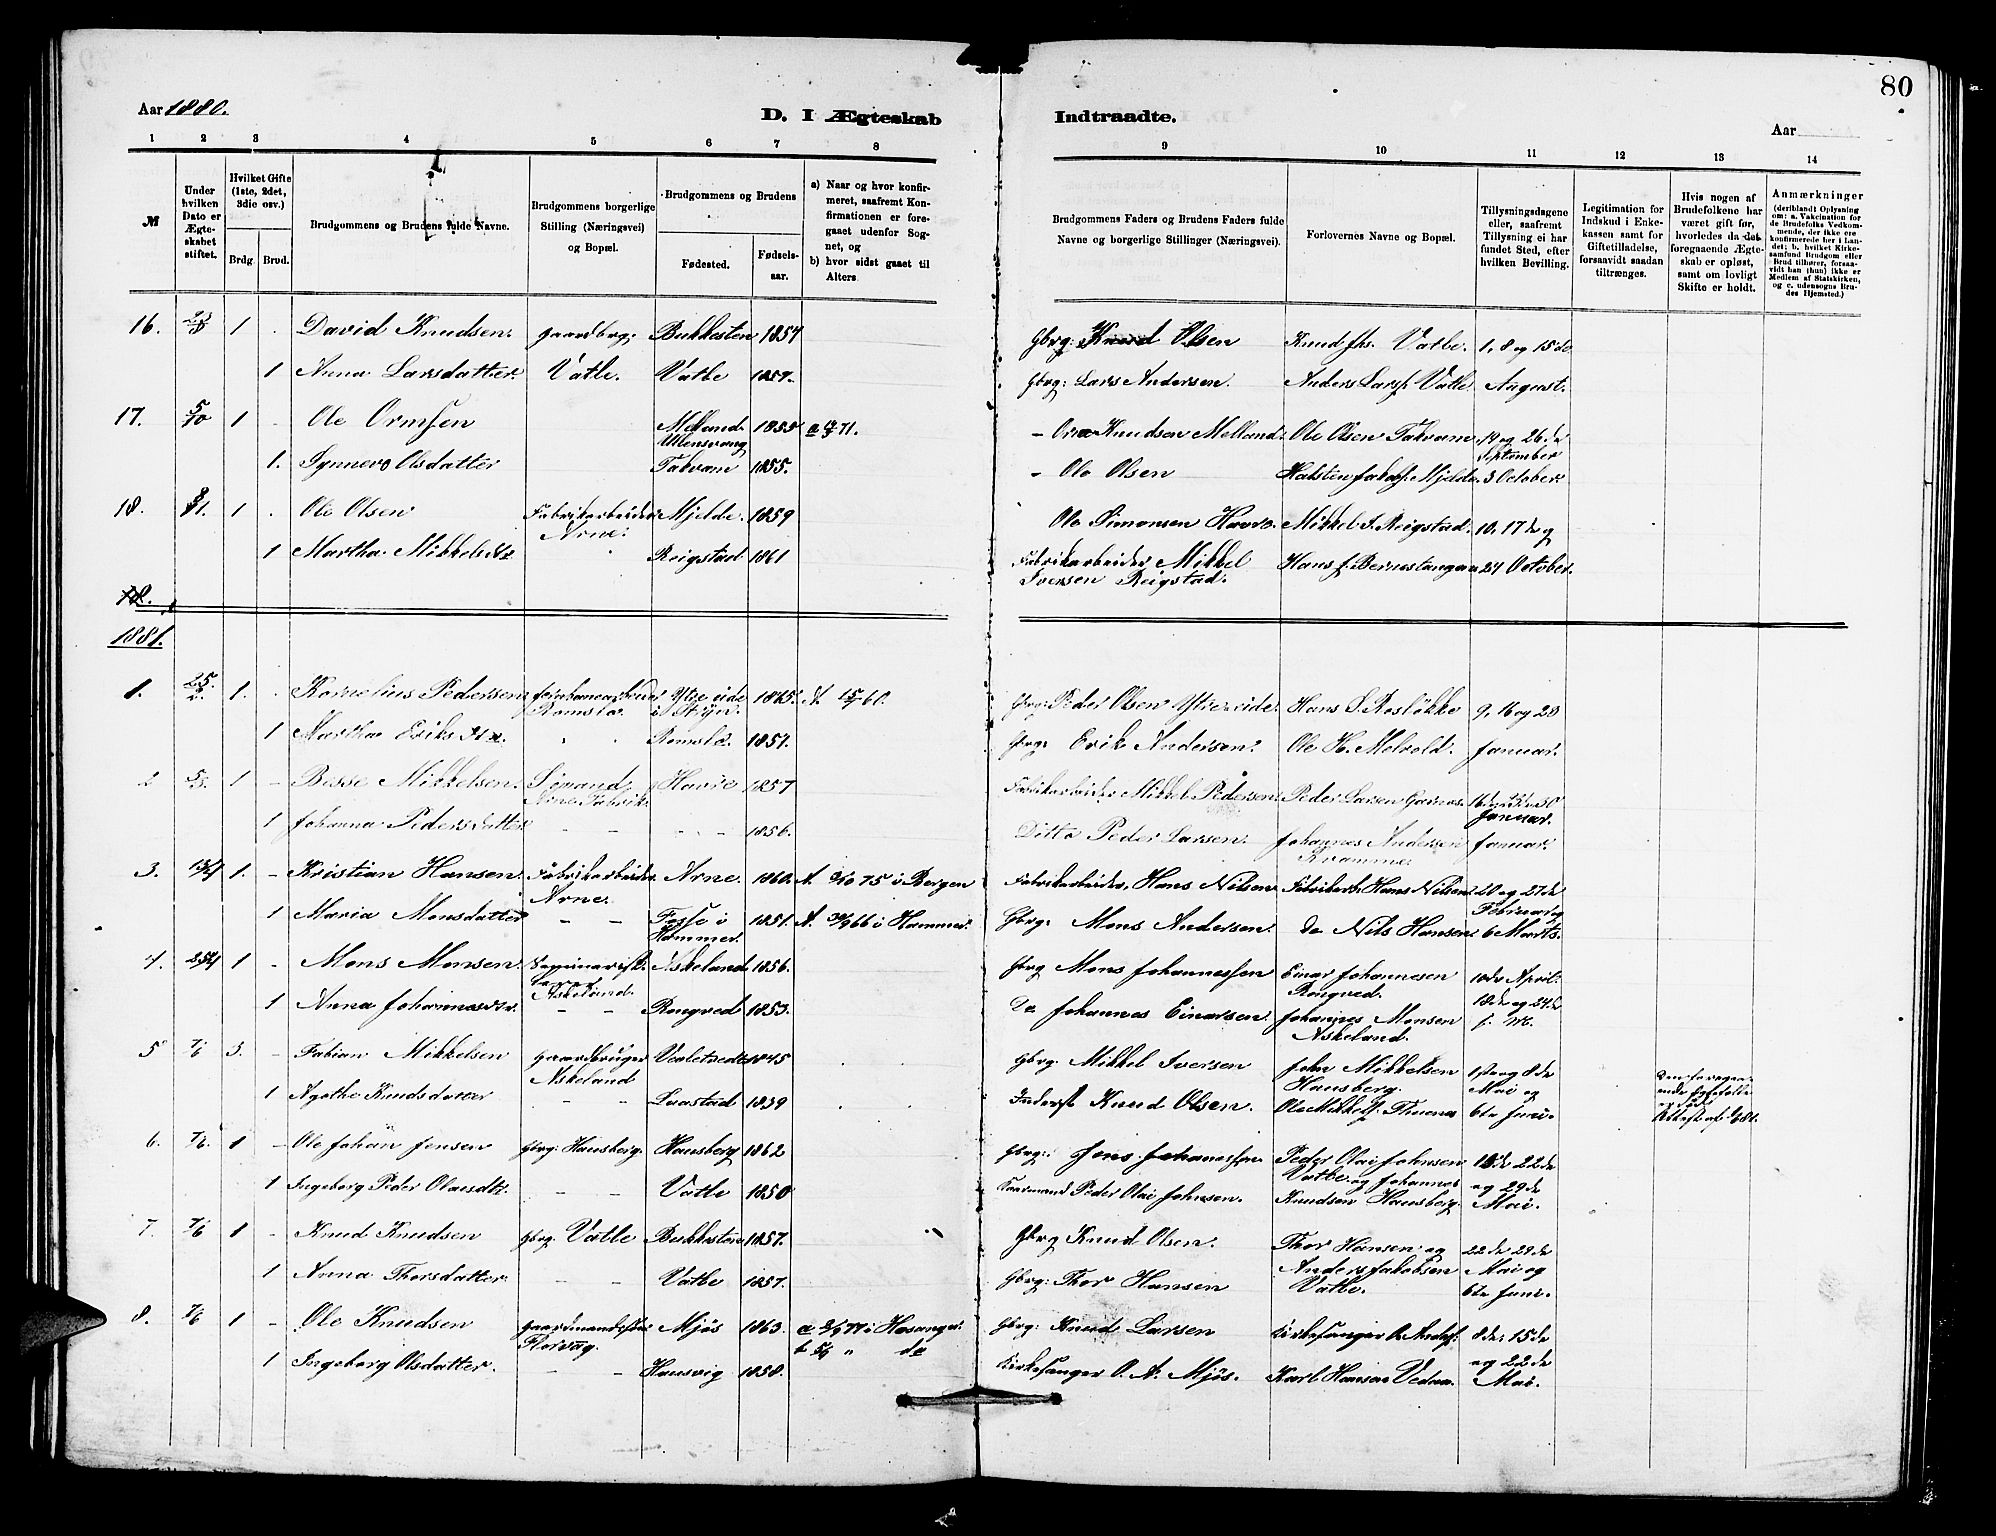 80
Aar 1880.
D. I Ægteskab
Indtraadte.
Aar
1 2 3 4 5 6 7 8
9 10 11 12 13 14
№
Under hvilken Dato er Ægteskabet stiftet.
Hvilket Gifte (1ste, 2det, 3die osv.)
Brdg. Brud.
Brudgommens og Brudens fulde Navne.
Brudgommens borgerlige Stilling (Næringsvei) og Bopæl.
Brudgommens og Brudens
Fødested.
Fødselsaar.
a) Naar og hvor konfirmeret, saafremt Konfirmationen er foregaaet udenfor Sognet, og
b) hvor sidst gaaet til Alters.
Brudgommens Faders og Brudens Faders fulde Navne og borgerlige Stillinger (Næringsvei).
Forlovernes Navne og Bopæl.
Tillysningsdagene eller, saafremt Tillysning ei har fundet Sted, efter hvilken Bevilling.
Legitimation for Indskud i Enkekassen samt for Giftetilladelse, forsaavidt saadan tiltrænges.
Hvis nogen af Brudefolkene har været gift før, hvorledes da det foregaaende Ægteskab er opløst, samt om lovligt Skifte er holdt.
Anmærkninger (deriblandt Oplysning om: a. Vakcination for de Brudefolks Vedkommende, der ikke ere konfirmerede her i Landet; b. hvilket Kirkesamfund Brudgom eller Brud tilhører, forsaavidt han (hun) ikke er Medlem af Statskirken, og c. udensogns Brudes Hjemsted.)
16. 1 David Knudsen. Gaardbrg: Bukkesten 1857 Gbrg: Knud Olsen Knud Jhs. Vatle. 1, 8 og 15de
1 Anna Larsdatter. Vatle. Vatle 1857. Gbrg: Lars Andersen. Anders Larss. Vatle August.
17. 5/10 1 Ole Ormsen Melland Ullensvang 1855 - Orm Knudsen Melland. Ole Olsen Takvam 19 og 26de September
1. Synneva Olsdatter Takvam 1855. - Ole Olsen Halsten Jakobs. Mjelde. 3 October.
18. 1 Ole Olsen Fabrikarbeider Arne. Mjelde. 1859 Ole Simonsen Havre. Mikkel I. Reigstad. 10, 17de og
1 Martha Mikkelsdtr Reigstad 1861 Fabrikarbeider Mikkel Iversen Reigstad. Hans J. Bernestangen 24 October.
18.
1881.
1. 1. Kornelius Pedersen Romslo. Ytre eide i Stryn. 1865. Gbrg: Peder Olsen Ytre eide. Hans S. Røsløkke 9, 16 og 23
1 Martha Eriksdtr. Romslo. 1857. Gbrg: Erik Andersen. Ole H. Melvold. Januar.
2 1 - Besse Mikkelsen Arne Fabrik. Havre 1857 Fabrikarbeider Mikkel Pedersen. Peder Larsen Garnes. Januar.
1 Johanna Pedersdatter - - - - 1856. Ditto Peder Larsen. Johannes Andersen Kvamme Januar.
3. 1. - Kristian Hansen. Fabrikarbeider Arne. Arne. 1860. 75 i Bergen Fabrikarbeider, Hans Nilsen Fabrikarb. Hans Nilsen 20 og 27de Februar og
1 Maria Monsdatter - - Fosse i Hammer. 1851. 66 i Hammer. Gbrg: Mons Andersen. do Nils Hansen. 6 Marts.
4. 1 - Mons Monsen. Seminarist Askeland. Askeland 1856. Gbrg Mons Johannessen Einar Johannesen Rongved. 10de April.
1 Anna Johannesdtr. - - Rongved 1853. Do Johannes Einarsen. Johannes Monsen Askeland. 18de og 24de
5 7/6 3. - Fabian Mikkelsen Gaardbruger Askeland 1845 Gbrg: Mikkel Iversen John Mikkelsen Hausberg. 1ste og 8de
1 Agathe Knudsdatter - - Laastad 1839 Inderst Knud Olsen. Ole Mikkels. Mai og 6te Juni.
6. 7/6. 1 - Ole Johan Jensen Gbrg: Hausberg. Hausberg 1862 Gbrg: Jens Johannessen Peder Olai Johnsen Vatle og Johannes 15de 22de
1 Ingeborg Peder Olaisdtr. - - Vatle 1850 Kaarmand Peder Olai Johnsen. Knudsen Hausberg. og 29de Mai.
7. 7/6 1 - Knud Knudsen Gbrg: Vatle Bukkesten 1857. Gbrg Knud Olsen. Thor Hansen og 22de 29de
1 Anna Thorsdatter. - - Vatle 1857. Gbrg: Thor Hansen Anders Jakobsen Vatle. Mai og 6te Juni.
8. 7/6 1 - Ole Knudsen Gaardmandssøn Florvaag. Mjøs 1863. i Hosanger. Gbrg: Knud Larsen Kirkesanger O. Anders. 8de 15de
1 Ingeborg Olsdatter. - - Hausvig 1858. do Kirkesanger O. A. Mjøs. Karl Hansen Vedaa. og 22de Mai.